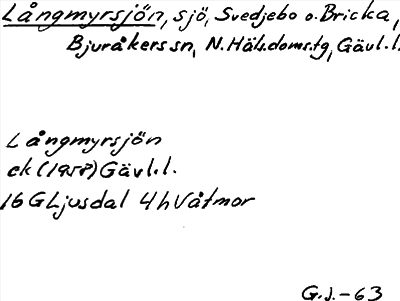 Långmyrsjön, sjö, Svedjebo o. Bricka,
Bjuråkers sn, N. Häls. doms. tg, Gävl. l.
Långmyrsjön
ek (1958) Gävl. l.
16 G Ljusdal 4 h Våtmor
G.J. - 63